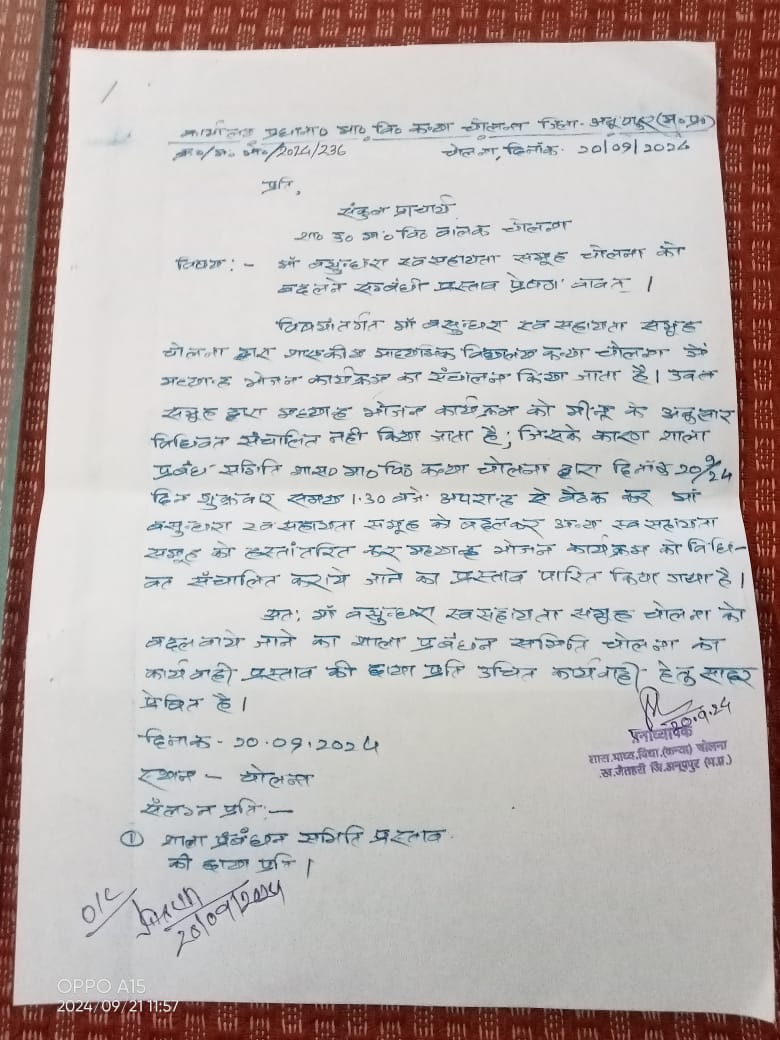 कार्यालय प्रधाना० मा० वि० कन्या चोलना जिला- अनूपपुर (म.प्र.)
क्र०/म० भो०/2024/236 चोलना, दिनांक- 20/09/2024
प्रति,
संकुल प्राचार्य
शा० उ० मा० वि० बालक चोलना
विषय:- माँ वसुन्धरा स्व सहायता समूह चोलना को
बदलने सम्बंधी प्रस्ताव प्रेषण बावत् ।
विषयांतर्गत माँ वसुन्धरा स्व सहायता समूह
चोलना द्वारा शासकीय माध्यमिक विद्यालय कन्या चोलना में
मध्यान्ह भोजन कार्यक्रम का संचालन किया जाता है। उक्त
समूह द्वारा मध्यान्ह भोजन कार्यक्रम को मीनू के अनुसार
विधिवत संचालित नही किया जाता है; जिसके कारण शाला
प्रबंध समिति शास० मा० वि० कन्या चोलना द्वारा दिनाँक 20/9/24
दिन शुक्रवार समय 1.30 बजे अपरान्ह से बैठक कर माँ
वसुन्धरा स्व सहायता समूह को बदलकर अन्य स्व सहायता
समूह को हस्तांतरित कर मध्यान्ह भोजन कार्यक्रम को विधि-
वत संचालित कराये जाने का प्रस्ताव पारित किया गया है।
अत: माँ वसुन्धरा स्व सहायता समूह चोलना को
बदलवाये जाने का शाला प्रबंधन समिति चोलना का
कार्यवाही प्रस्ताव की छाया प्रति उचित कार्यवाही हेतु सादर
प्रेषित है।
20.9.24
दिनांक- 20.09.2024
प्रधानाध्यापक
शास.माध्य.विद्या.(कन्या) चोलना
ख.जैतहरी जि.अनूपपुर (म.प्र.)
स्थान - चोलना
संलग्न प्रति:-
① शाला प्रबंधन समिति प्रस्ताव
की छाया प्रति ।
O/C
20/09/2024
OPPO A15
2024/09/21 11:57